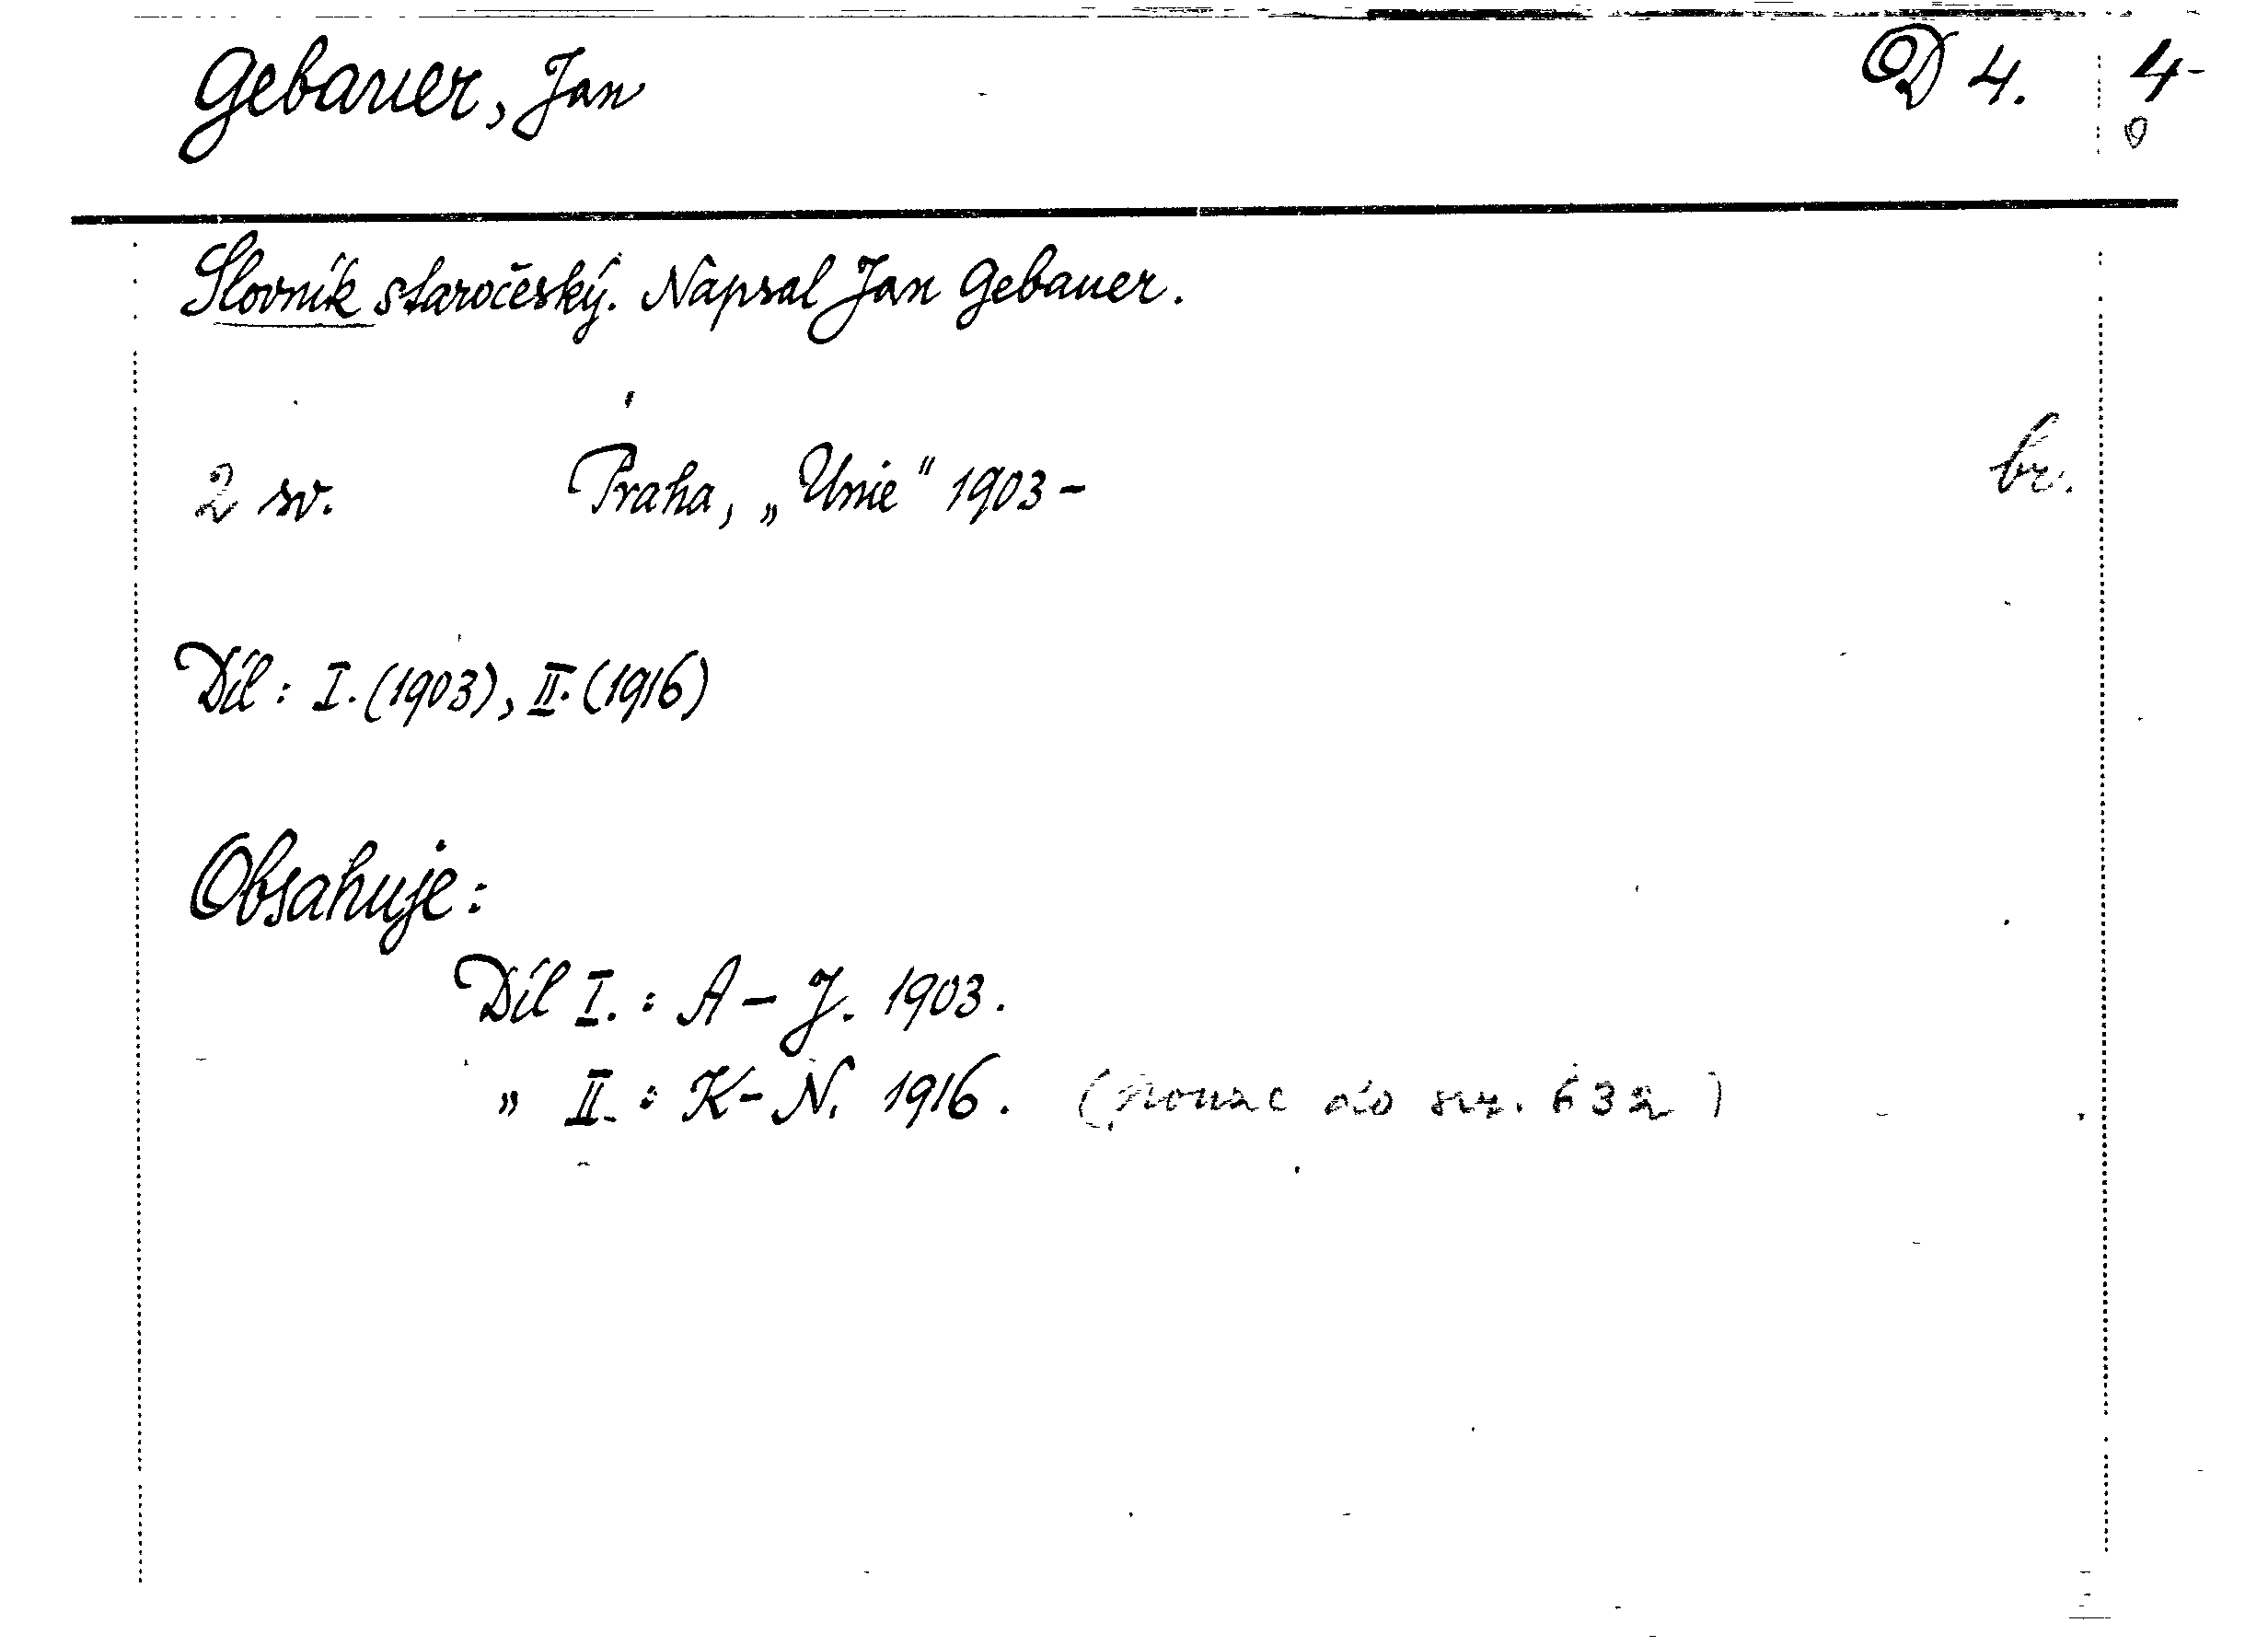 Gebauer, Jan D 4. 4-
Slovník staročeský. Napsal Jan Gebauer.
2 sv. Praha, „Unie" 1903- br.
Díl: I. (1903), II. (1916)
Obsahuje:
Díl I. : A - J. 1903.
„ II. : K - N. 1916. (pouze do str. 632)